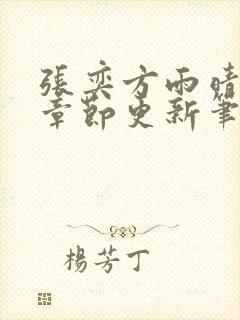 張奕方雨晴
章節更新筆
楊芳丁